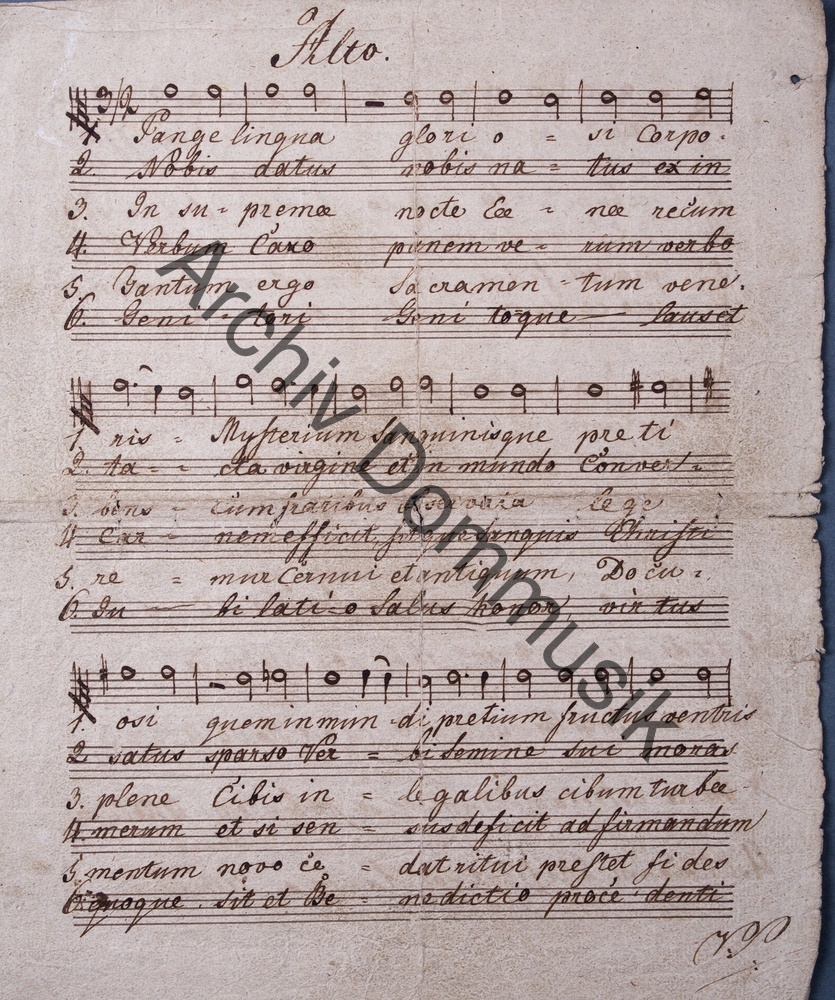 Alto.
3/2
1. Pange lingua glori o = si Corpo.
2. Nobis datus nobis na = tus ex in
3. In su = premæ nocte Cœ = næ recum
4. Verbum Caro panem ve = rum verbo
5. Tantum ergo Sa cramen = tum vene.
6. Geni = tori Geni toque — lauset
1. ris = Mysterium Sanguinisque pre ti
2. ta = cta virgine et in mundo Conver =
3. bens = cum fratribus observata le ge
4. Car = nem efficit, sitque Sanguis Christi
5. re = mur Cernui et antiquum, Docu =
6. Ju — bi lati = o Salus honor, virtus
1. osi quem in mun = di pretium fructus ventris
2. satus sparso Ver = bi Semine sui moras
3. plene Cibis in = legalibus cibum turbæ
4. merum et si sen = sus deficit ad firmandum
5. mentum novo ce = dat ritui prestet fides
6. quoque sit et Be = nedictio proce denti
Archiv Dommusik